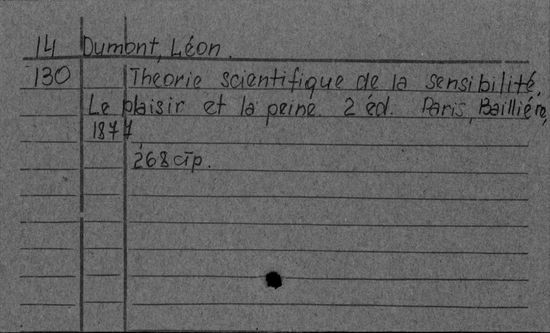 14 Dumont, Léon.
130 Théorie scientifique de la sensibilité.
Le plaisir et la peine. 2 éd. Paris, Baillière,
1877
268 стр.